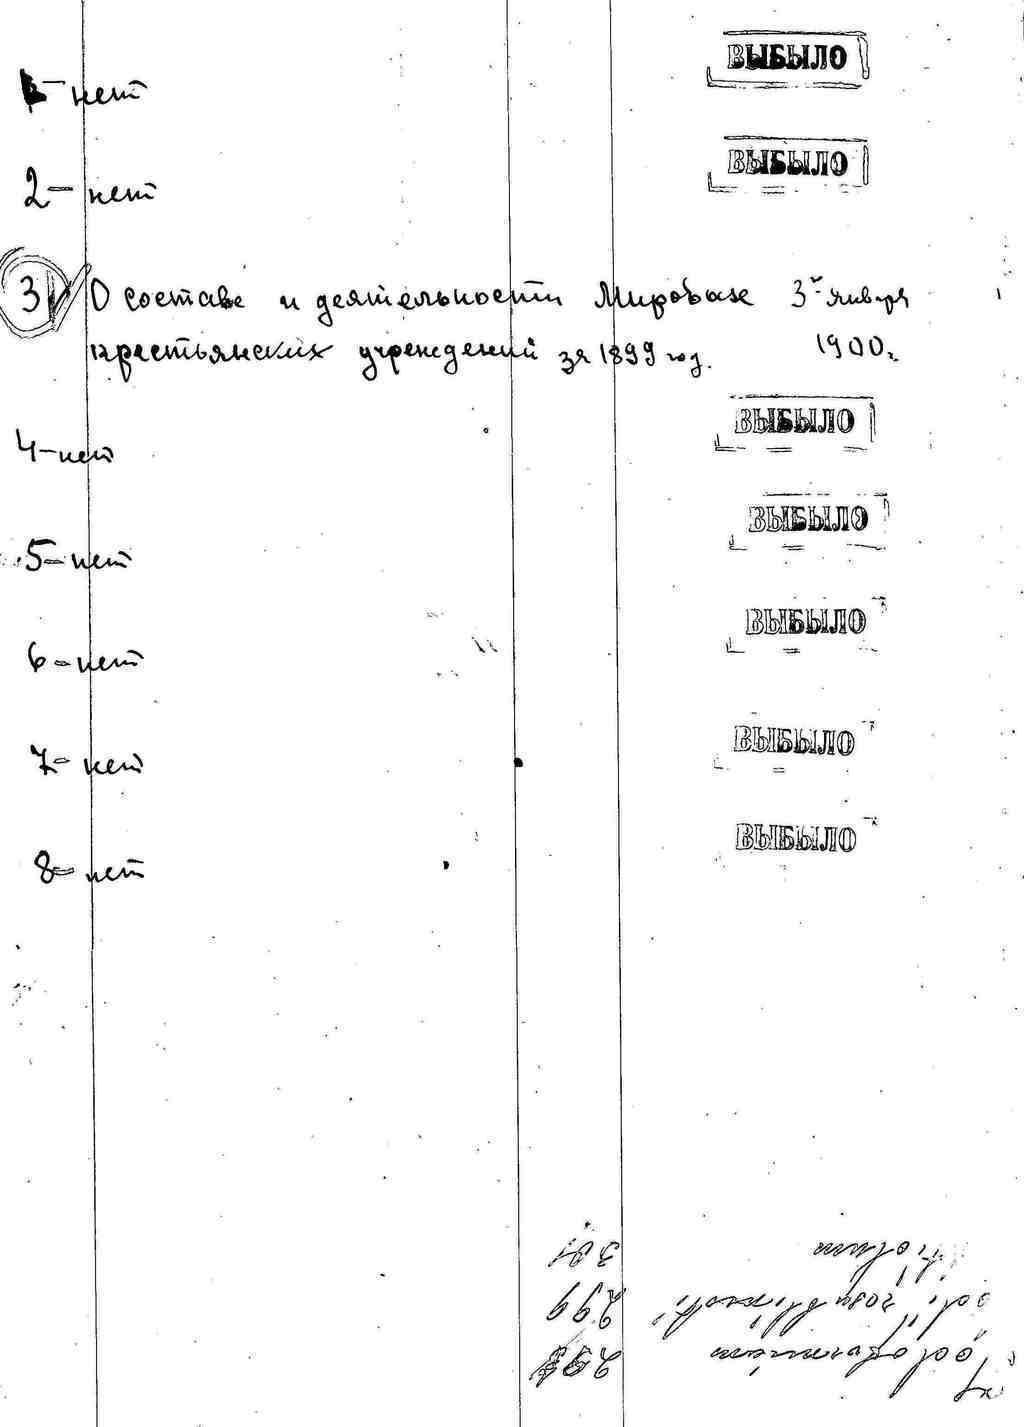 ВЫБЫЛО
1-нет
ВЫБЫЛО
2-нет
3 О составе и деятельности Мировых 3го января
крестьянских учреждений за 1899 год. 1900г.
ВЫБЫЛО
4-нет
ВЫБЫЛО
5-нет
ВЫБЫЛО
6-нет
ВЫБЫЛО
7-нет
ВЫБЫЛО
8-нет
301
299